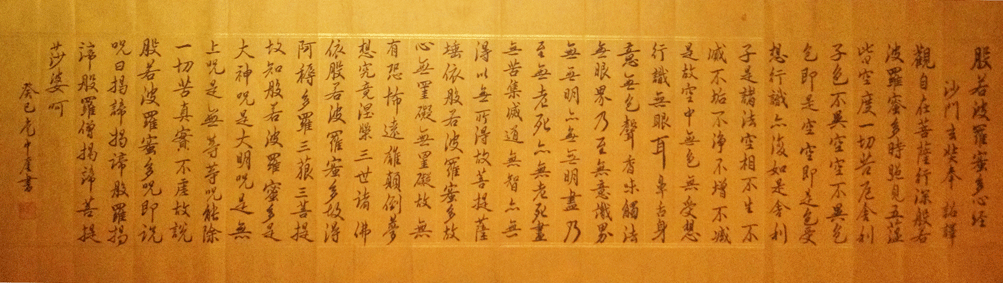 般若波羅蜜多心经
沙門玄奘奉 詔譯
觀自在菩薩行深般若
波羅蜜多時照見五蘊
皆空度一切苦厄舍利
子色不異空空不異色
色即是空空即是色受
想行識亦復如是舍利
子是諸法空相不生不
滅不垢不淨不增不減
是故空中無色無受想
行識無眼耳鼻舌身
意無色聲香味觸法
無眼界乃至無意識界
無無明亦無無明盡乃
至無老死亦無老死盡
無苦集滅道無智亦無
得以無所得故菩提薩
埵依般若波羅蜜多故
心無罣礙無罣礙故無
有恐怖遠離顛倒夢
想究竟涅槃三世諸佛
依般若波羅蜜多故得
阿耨多羅三藐三菩提
故知般若波羅蜜多是
大神咒是大明咒是無
上咒是無等等咒能除
一切苦真實不虛故說
般若波羅蜜多咒即說
咒曰揭諦揭諦般羅揭
諦般羅僧揭諦菩提
莎婆呵
癸巳 書